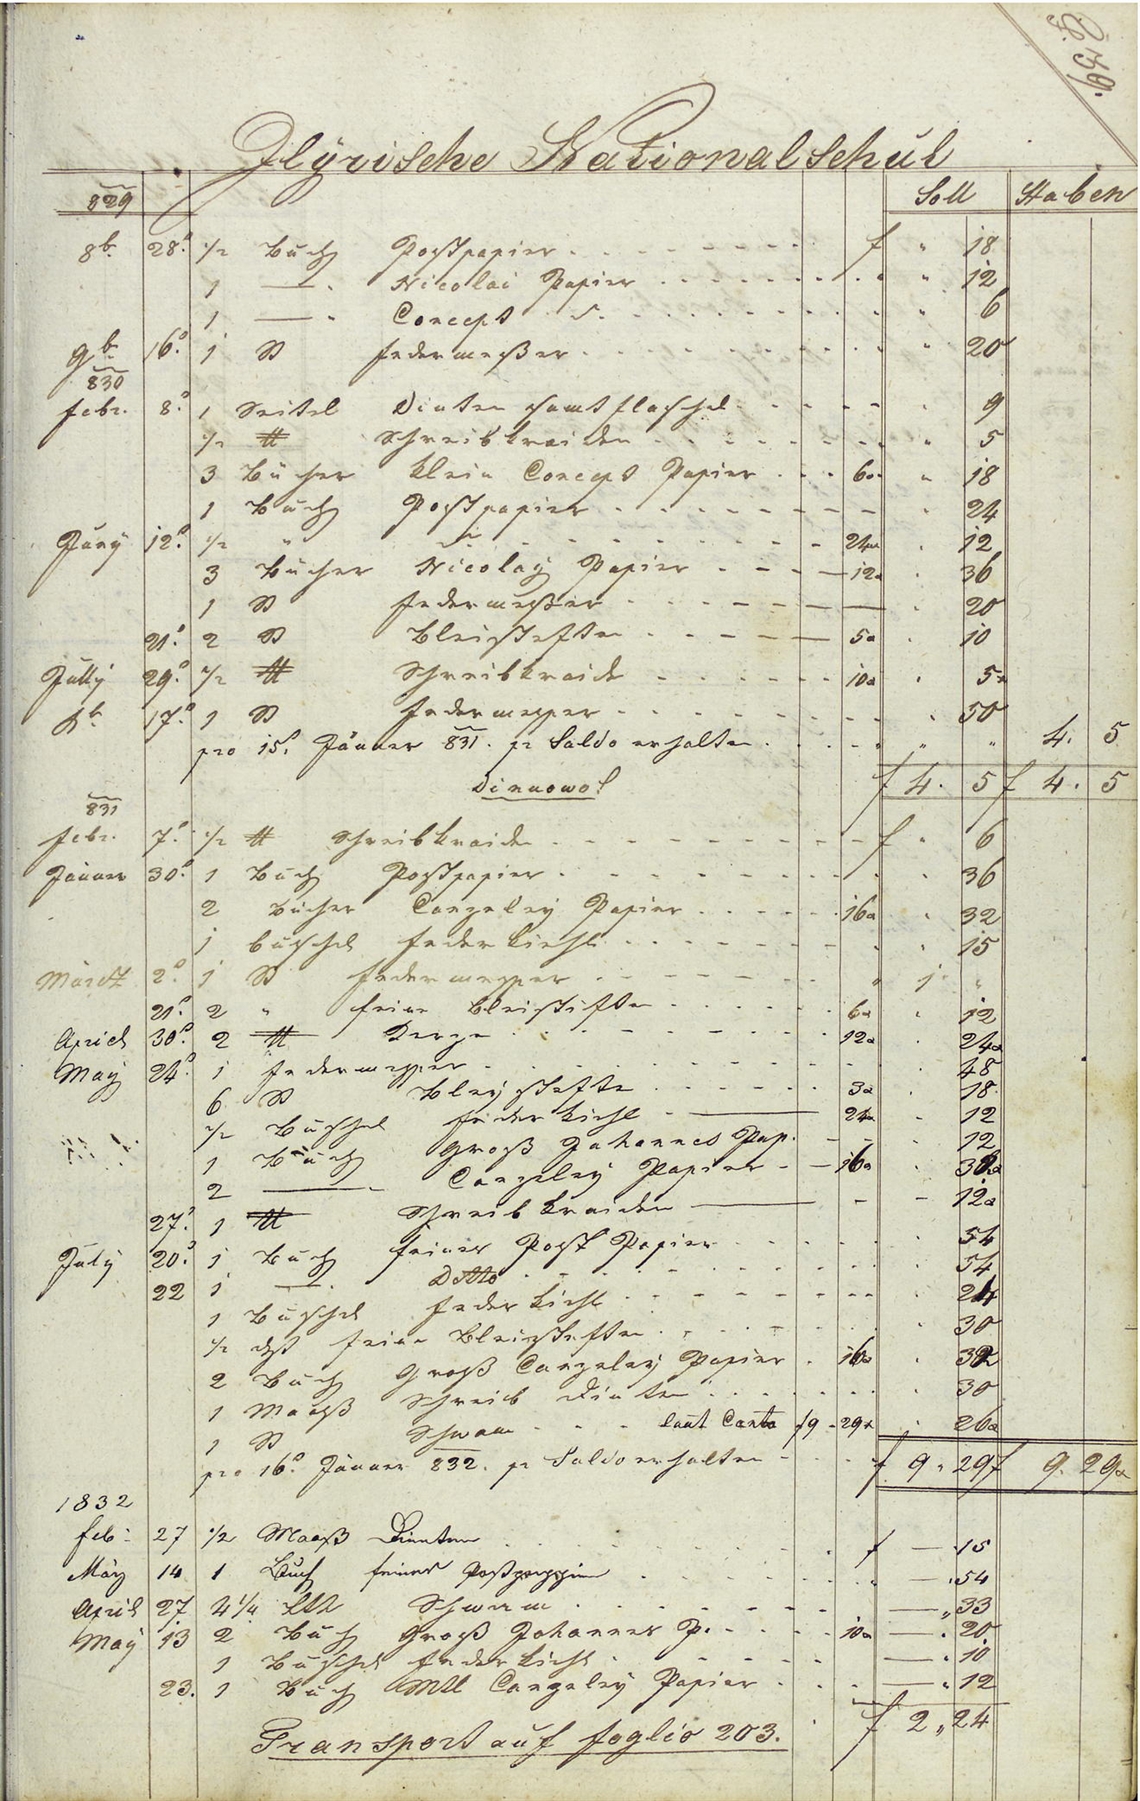 219.
Ilÿrische Nationalschul
829 Soll Haben
8b. 28. 1/2 Buch Postpapier f " 18
1 — Nicolai Papier " 12
1 — Concept " 6
9b. 16. 1 St Federmeßer " 20
830
Febr. 8. 1 Seitel Dinten samt flaschl 9
1/2 tt Schreibkreiden " 5
3 Bücher klein Concept Papier 6 " 18
1 Buch Postpapier 24
Juny 12. 1/2 " 24 12
3 Bücher Nicolaÿ Papier 12 36
1 St Federmeßer 20
21. 2 St Bleistiften 5 10
Jully 29. 1/2 tt Schreibkreide 10 5
17. 1 St Federmesser 50
pro 15. Jänner 831. pr Saldo erhalten " " 4. 5
f 4. 5 f 4. 5
831
Febr. 7. 1/2 tt Schreibkreiden f " 6
Jänner 30. 1 Buch Postpapier 36
2 Bücher Canzeleÿ Papier 16 32
1 büschel Federkiehl 15
Märtz 2. 1 St Federmesser 1 "
21. 2 " feine Bleistiften 6 12
April 30. 2 tt Kerze 12 24
Maÿ 24. 1 Federmesser 48
6 St Bleÿstifte 3 18
1/2 Buschel Federkiehl 24 12
1 Buch Groß Johannes Pap. 12
2 — Canzeleÿ Papier 16 32
27. 1 tt Schreibkreiden 12
July 20. 1 Buch feines Post Papier 54
22 1 — Ditto 54
1 Buschel Federkiehl 24
1/2 feine Bleistiften 30
2 Buch Groß Canzeleÿ Papier 16 32
1 Maaß Schreib Dinten 30
1 St Schwam laut Conto f 9 - 29 26
pro 16. Jänner 832. pr Saldo erhalten f 9 " 29 f 9. 29
1832
Feb: 27 1/2 Maaß Dinnten f — 15
März 14 1 Buch feines Postpappier — 54
April 27 4 1/4 Lth Schwam — " 33
Maÿ 13 2 Buch Groß Johannes P. 10 — 20
1 Buschel Federkiehl — 10
23. 1 Buch Mttl Canzeleÿ Papier — " 12
f 2 " 24
Transport auf foglio 203.